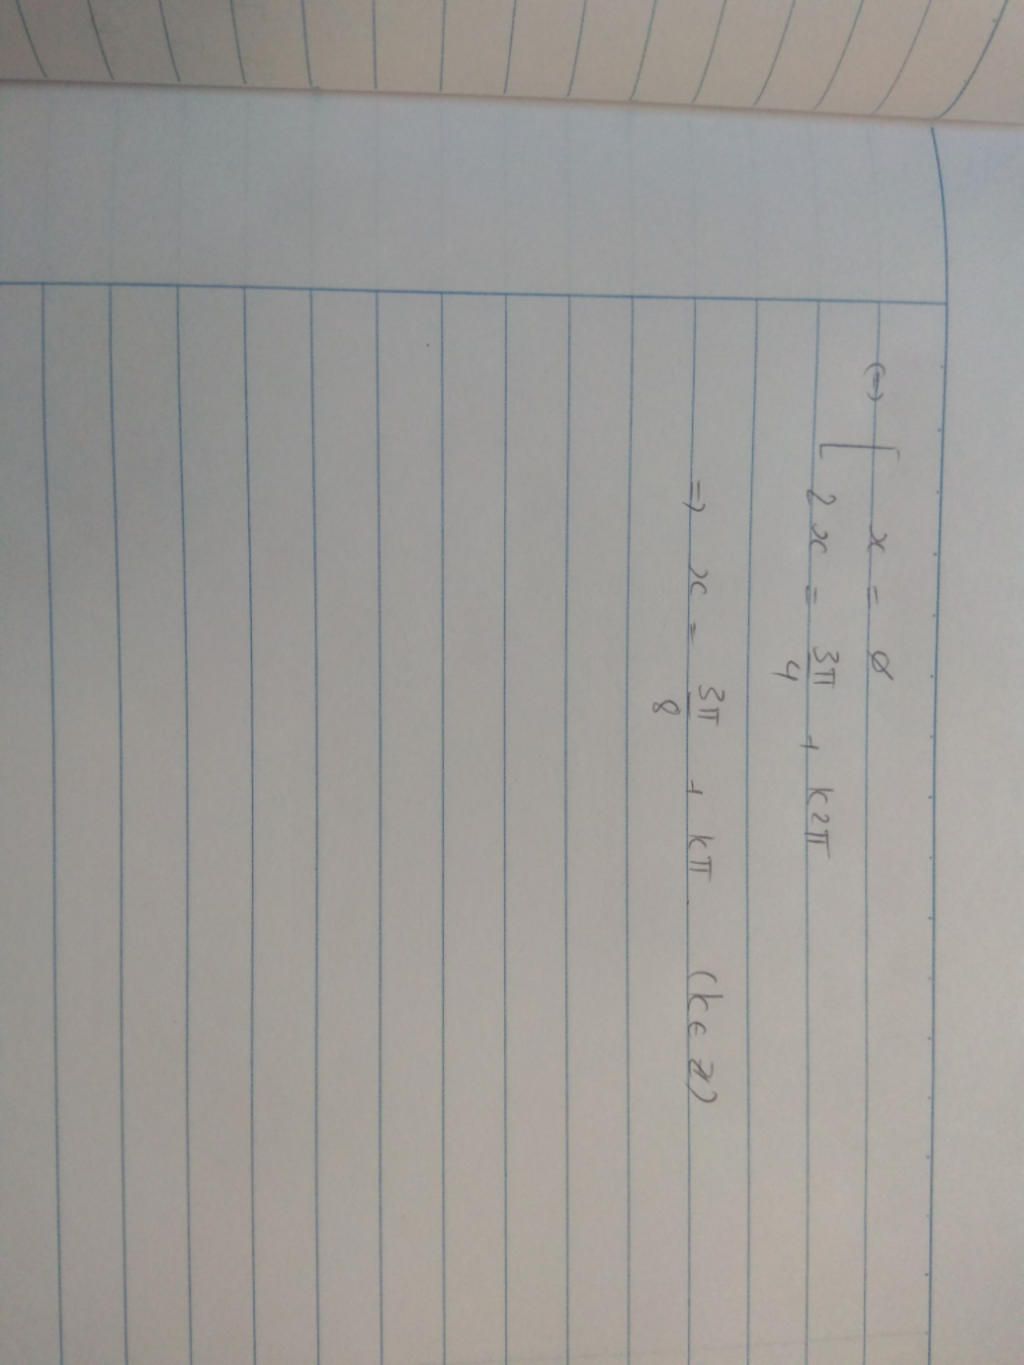 (=) [ x = ∅
2x = 3π/4 + k2π
=> x = 3π/8 + kπ (k ∈ Z)